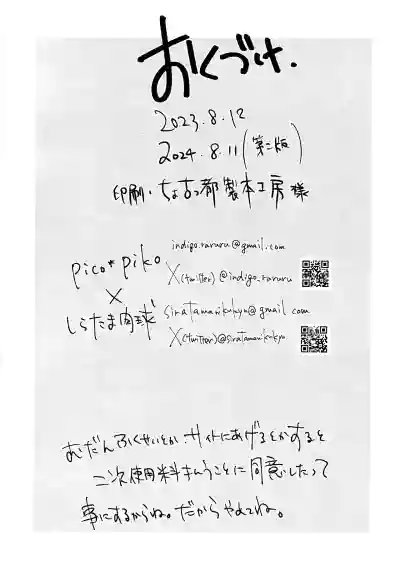 おくづけ.
2023.8.12
2024.8.11(第二版)
印刷・ちょ古っ都製本工房様
pico*piko
×
しらたま肉球
indigo.raruru@gmail.com
X(twitter)@indigo_raruru
siratamanikukyu@gmail.com
X(twitter)@siratamanikukyo
むだんふくせいとか、サイトにあげるとかすると
二次使用料はらうことに同意したって
事にするからね。だからやめてね。